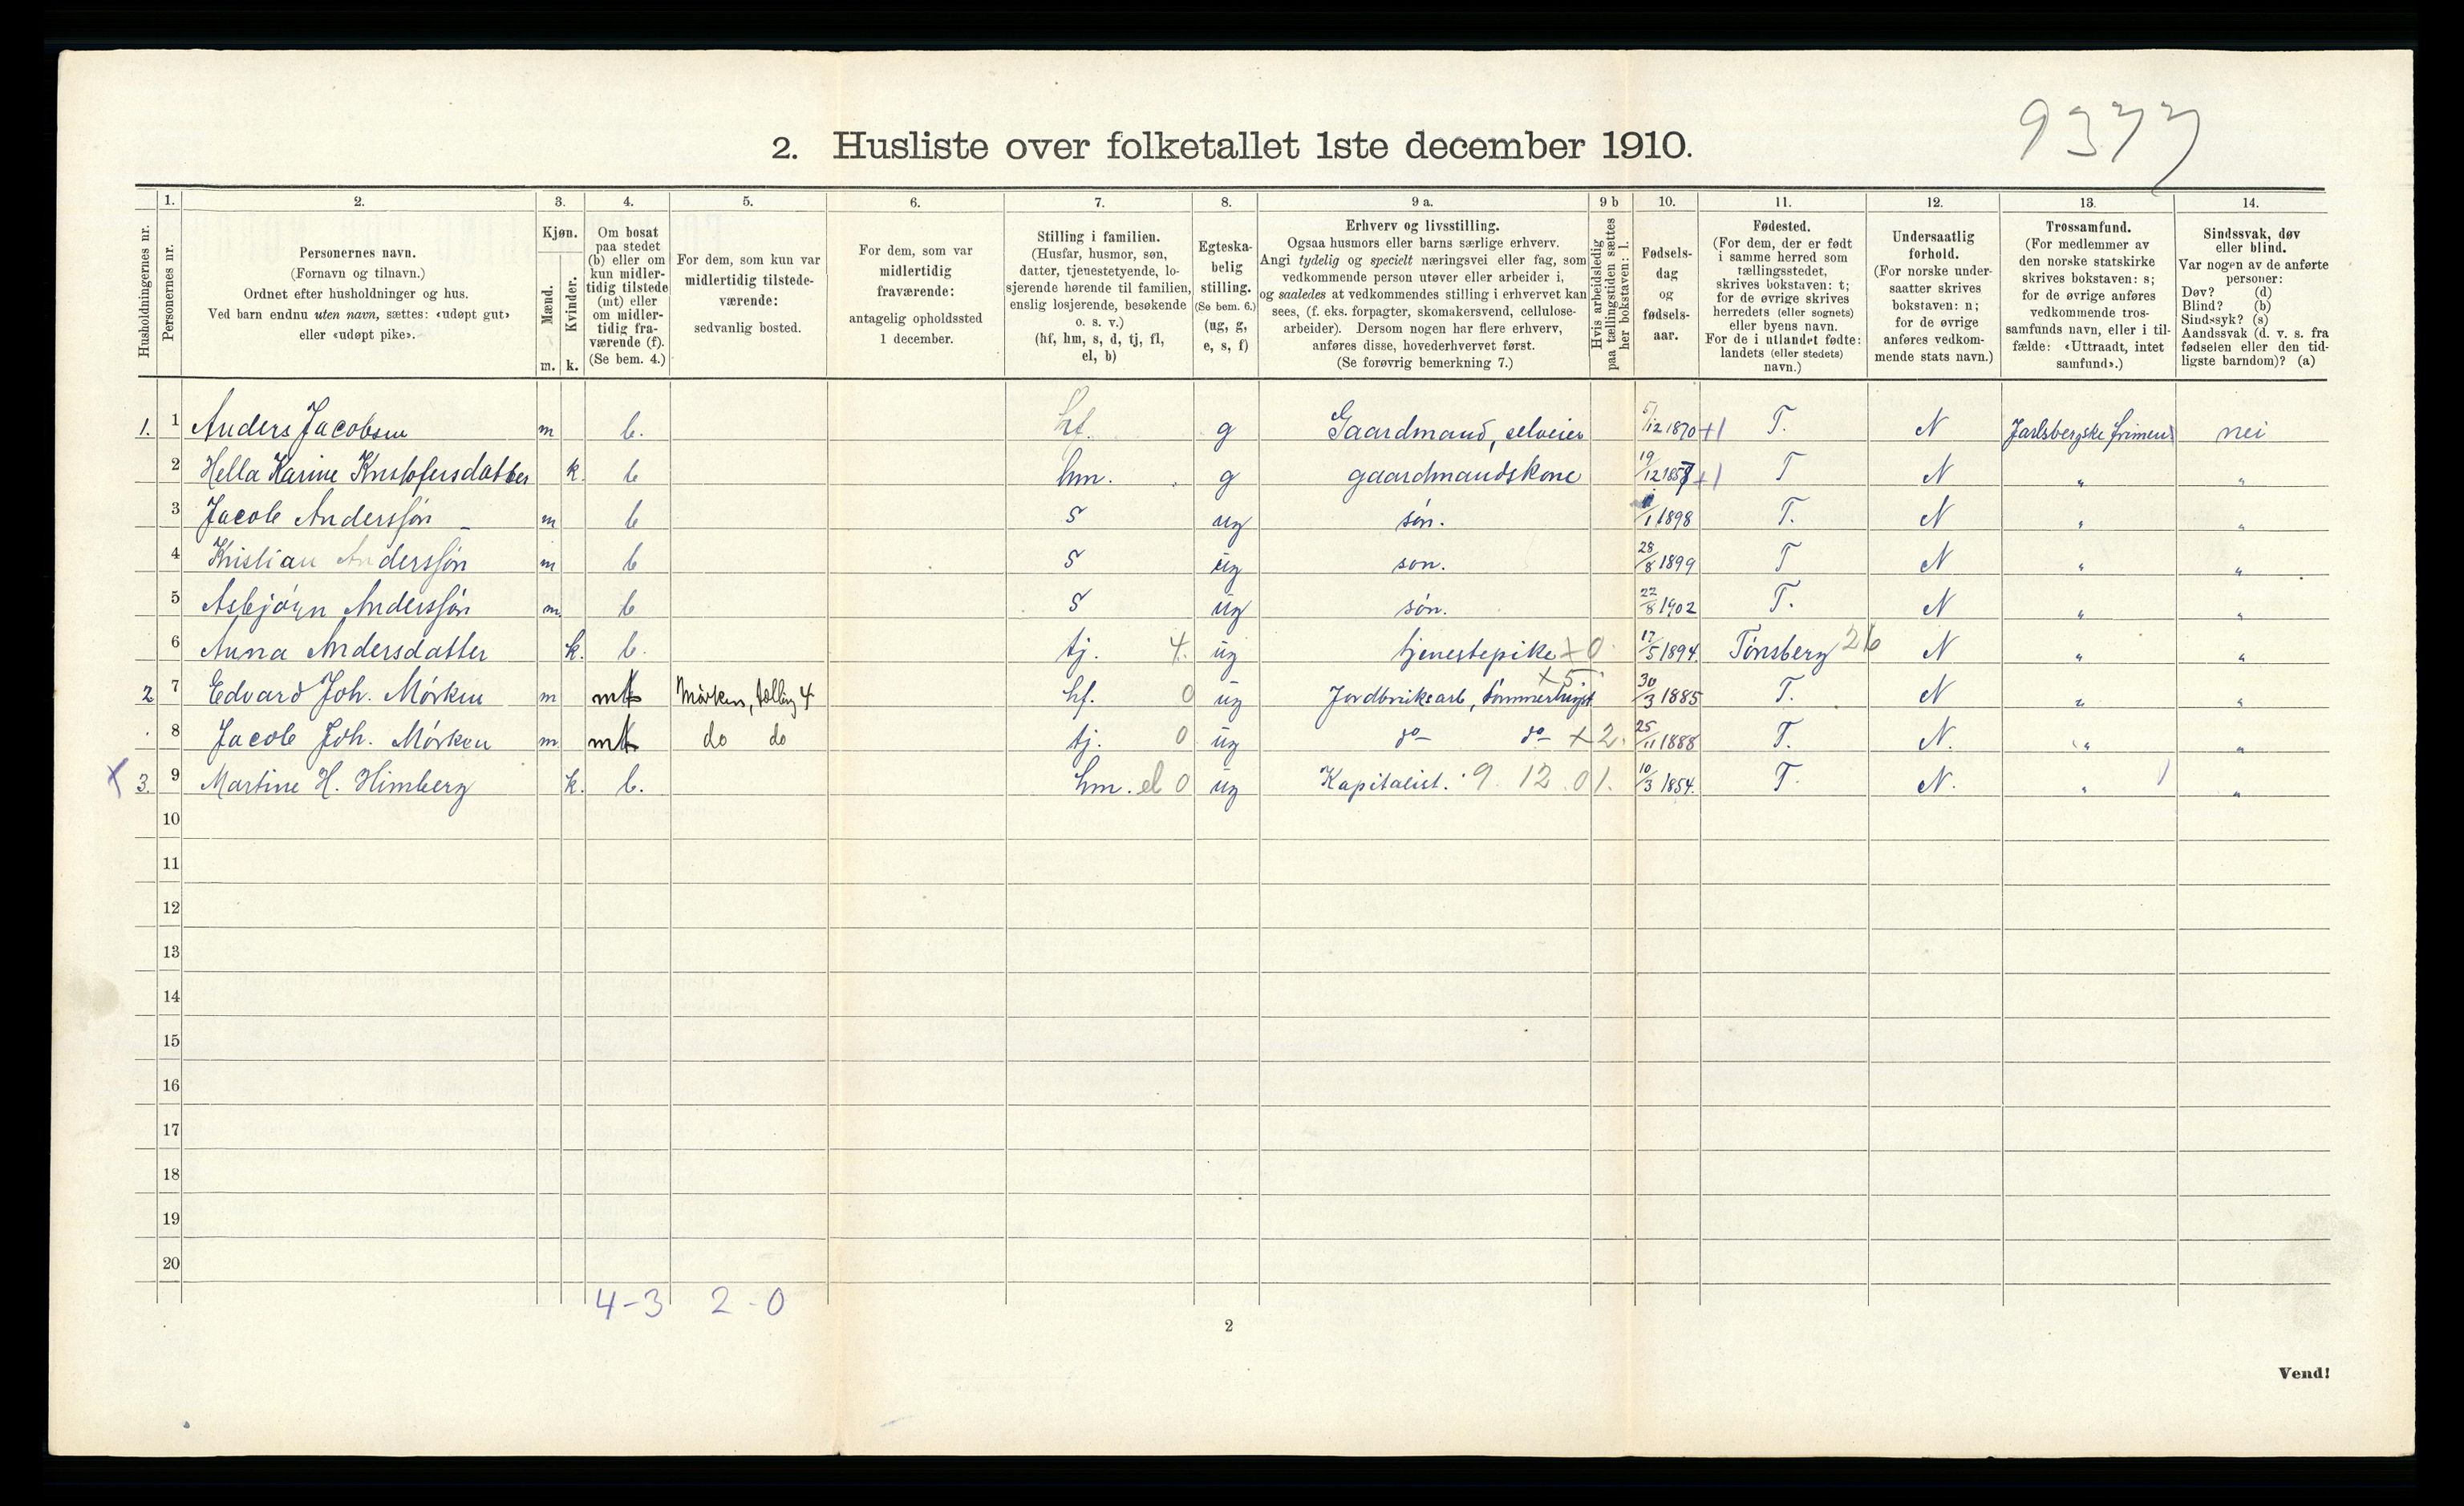 9377
2. Husliste over folketallet 1ste december 1910.
Husholdningernes nr.
1. Personernes nr.
2. Personernes navn.
(Fornavn og tilnavn.)
Ordnet efter husholdninger og hus.
Ved barn endnu uten navn, sættes: «udøpt gut»
eller «udøpt pike».
3. Kjøn.
Mænd. m.
Kvinder. k.
4. Om bosat
paa stedet
(b) eller om
kun midler-
tidig tilstede
(mt) eller
om midler-
tidig fra-
værende (f).
(Se bem. 4.)
5. For dem, som kun var
midlertidig tilstede-
værende:
sedvanlig bosted.
6. For dem, som var
midlertidig
fraværende:
antagelig opholdssted
1 december.
7. Stilling i familien.
(Husfar, husmor, søn,
datter, tjenestetyende, lo-
sjerende hørende til familien,
enslig losjerende, besøkende
o. s. v.)
(hf, hm, s, d, tj, fl,
el, b)
8. Egteska-
belig
stilling.
(Se bem. 6.)
(ug, g,
e, s, f)
9 a. Erhverv og livsstilling.
Ogsaa husmors eller barns særlige erhverv.
Angi tydelig og specielt næringsvei eller fag, som
vedkommende person utøver eller arbeider i,
og saaledes at vedkommendes stilling i erhvervet kan
sees, (f. eks. forpagter, skomakersvend, cellulose-
arbeider). Dersom nogen har flere erhverv,
anføres disse, hovederhvervet først.
(Se forøvrig bemerkning 7.)
9 b Hvis arbeidsledig
paa tællingstiden sættes
her bokstaven: l.
10. Fødsels-
dag
og
fødsels-
aar.
11. Fødested.
(For dem, der er født
i samme herred som
tællingsstedet,
skrives bokstaven: t;
for de øvrige skrives
herredets (eller sognets)
eller byens navn.
For de i utlandet fødte:
landets (eller stedets)
navn.)
12. Undersaatlig
forhold.
(For norske under-
saatter skrives
bokstaven: n;
for de øvrige
anføres vedkom-
mende stats navn.)
13. Trossamfund.
(For medlemmer av
den norske statskirke
skrives bokstaven: s;
for de øvrige anføres
vedkommende tros-
samfunds navn, eller i til-
fælde: «Uttraadt, intet
samfund».)
14. Sindssvak, døv
eller blind.
Var nogen av de anførte
personer:
Døv? (d)
Blind? (b)
Sindssyk? (s)
Aandssvak (d. v. s. fra
fødselen eller den tid-
ligste barndom)? (a)
1. 1 Anders Jacobsen m b. hf. g Gaardmand, selveier 5/12 1870 +1 T. N Jarlsbergske frimen. nei
2 Hella Karine Kristofersdatter k. b hm. g gaardmandskone 19/12 1857 +1 T N " "
3 Jacob Anderssøn m b s ug søn. 1/1 1898 T. N " "
4 Kristian Anderssøn m b s ug søn. 28/8 1899 T N " "
5 Asbjørn Anderssøn m b s ug søn. 22/8 1902 T. N " "
6 Anna Andersdatter k. b. tj. 4. ug tjenestepike +0. 17/5 1894. Tønsberg 26 N " "
2 7 Edvard Joh. Mørken m mt Mørken, tælling 4 hf. 0 ug Jordbruksarb, tømmerhugst x5. 30/3 1885 T. N " "
8 Jacob Joh. Mørken m mt do do tj. 0 ug do do x2. 25/11 1888 T. N. " "
x 3. 9 Martine H. Himberg k. b. hm. el 0 ug Kapitalist. 9. 12. 01. 10/3 1854. T. N. " "
10
11
12
13
14
15
16
17
18
19
20
4-3 2-0
2
Vend!